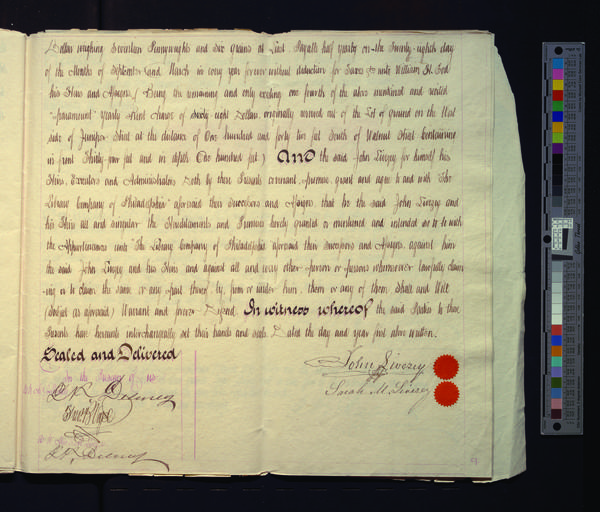 Dollar weighing Seventeen Pennyweights and Six grains at least. Payable half yearly on the Twenty-eighth day
of the Months of September and March in every year forever without deduction for Taxes &c unto William H. Todd
his Heirs and Assigns. (Being the remaining and only existing one fourth of the above mentioned and recited
"paramount" yearly Rent Charge of Sixty eight Dollars originally reserved out of the Lot of ground on the West
side of Juniper Street at the distance of One hundred and forty two feet South of Walnut Street containing
in front Thirty-four feet and in depth One hundred feet) And the said John Livezey for himself his
Heirs, Executors and Administrators Doth by these Presents covenant, promise, grant and agree to and with The
Library Company of Philadelphia aforesaid their Successors and Assigns, that he the said John Livezey and
his Heirs all and singular the Hereditaments and Premises hereby granted or mentioned and intended so to be with
the Appurtenances unto The Library Company of Philadelphia aforesaid their Successors and Assigns against him
the said John Livezey and his Heirs and against all and every other person or persons whomsoever lawfully claim-
-ing or to claim the same or any part thereof by from or under him, them or any of them, Shall and Will
(Subject as aforesaid) Warrant and forever Defend. In witness whereof the said Parties to these
Presents have hereunto interchangeably set their hands and seals. Dated the day and year first above written.
Sealed and Delivered
In the Presence of us
John Livezey
Sarah M. Livezey